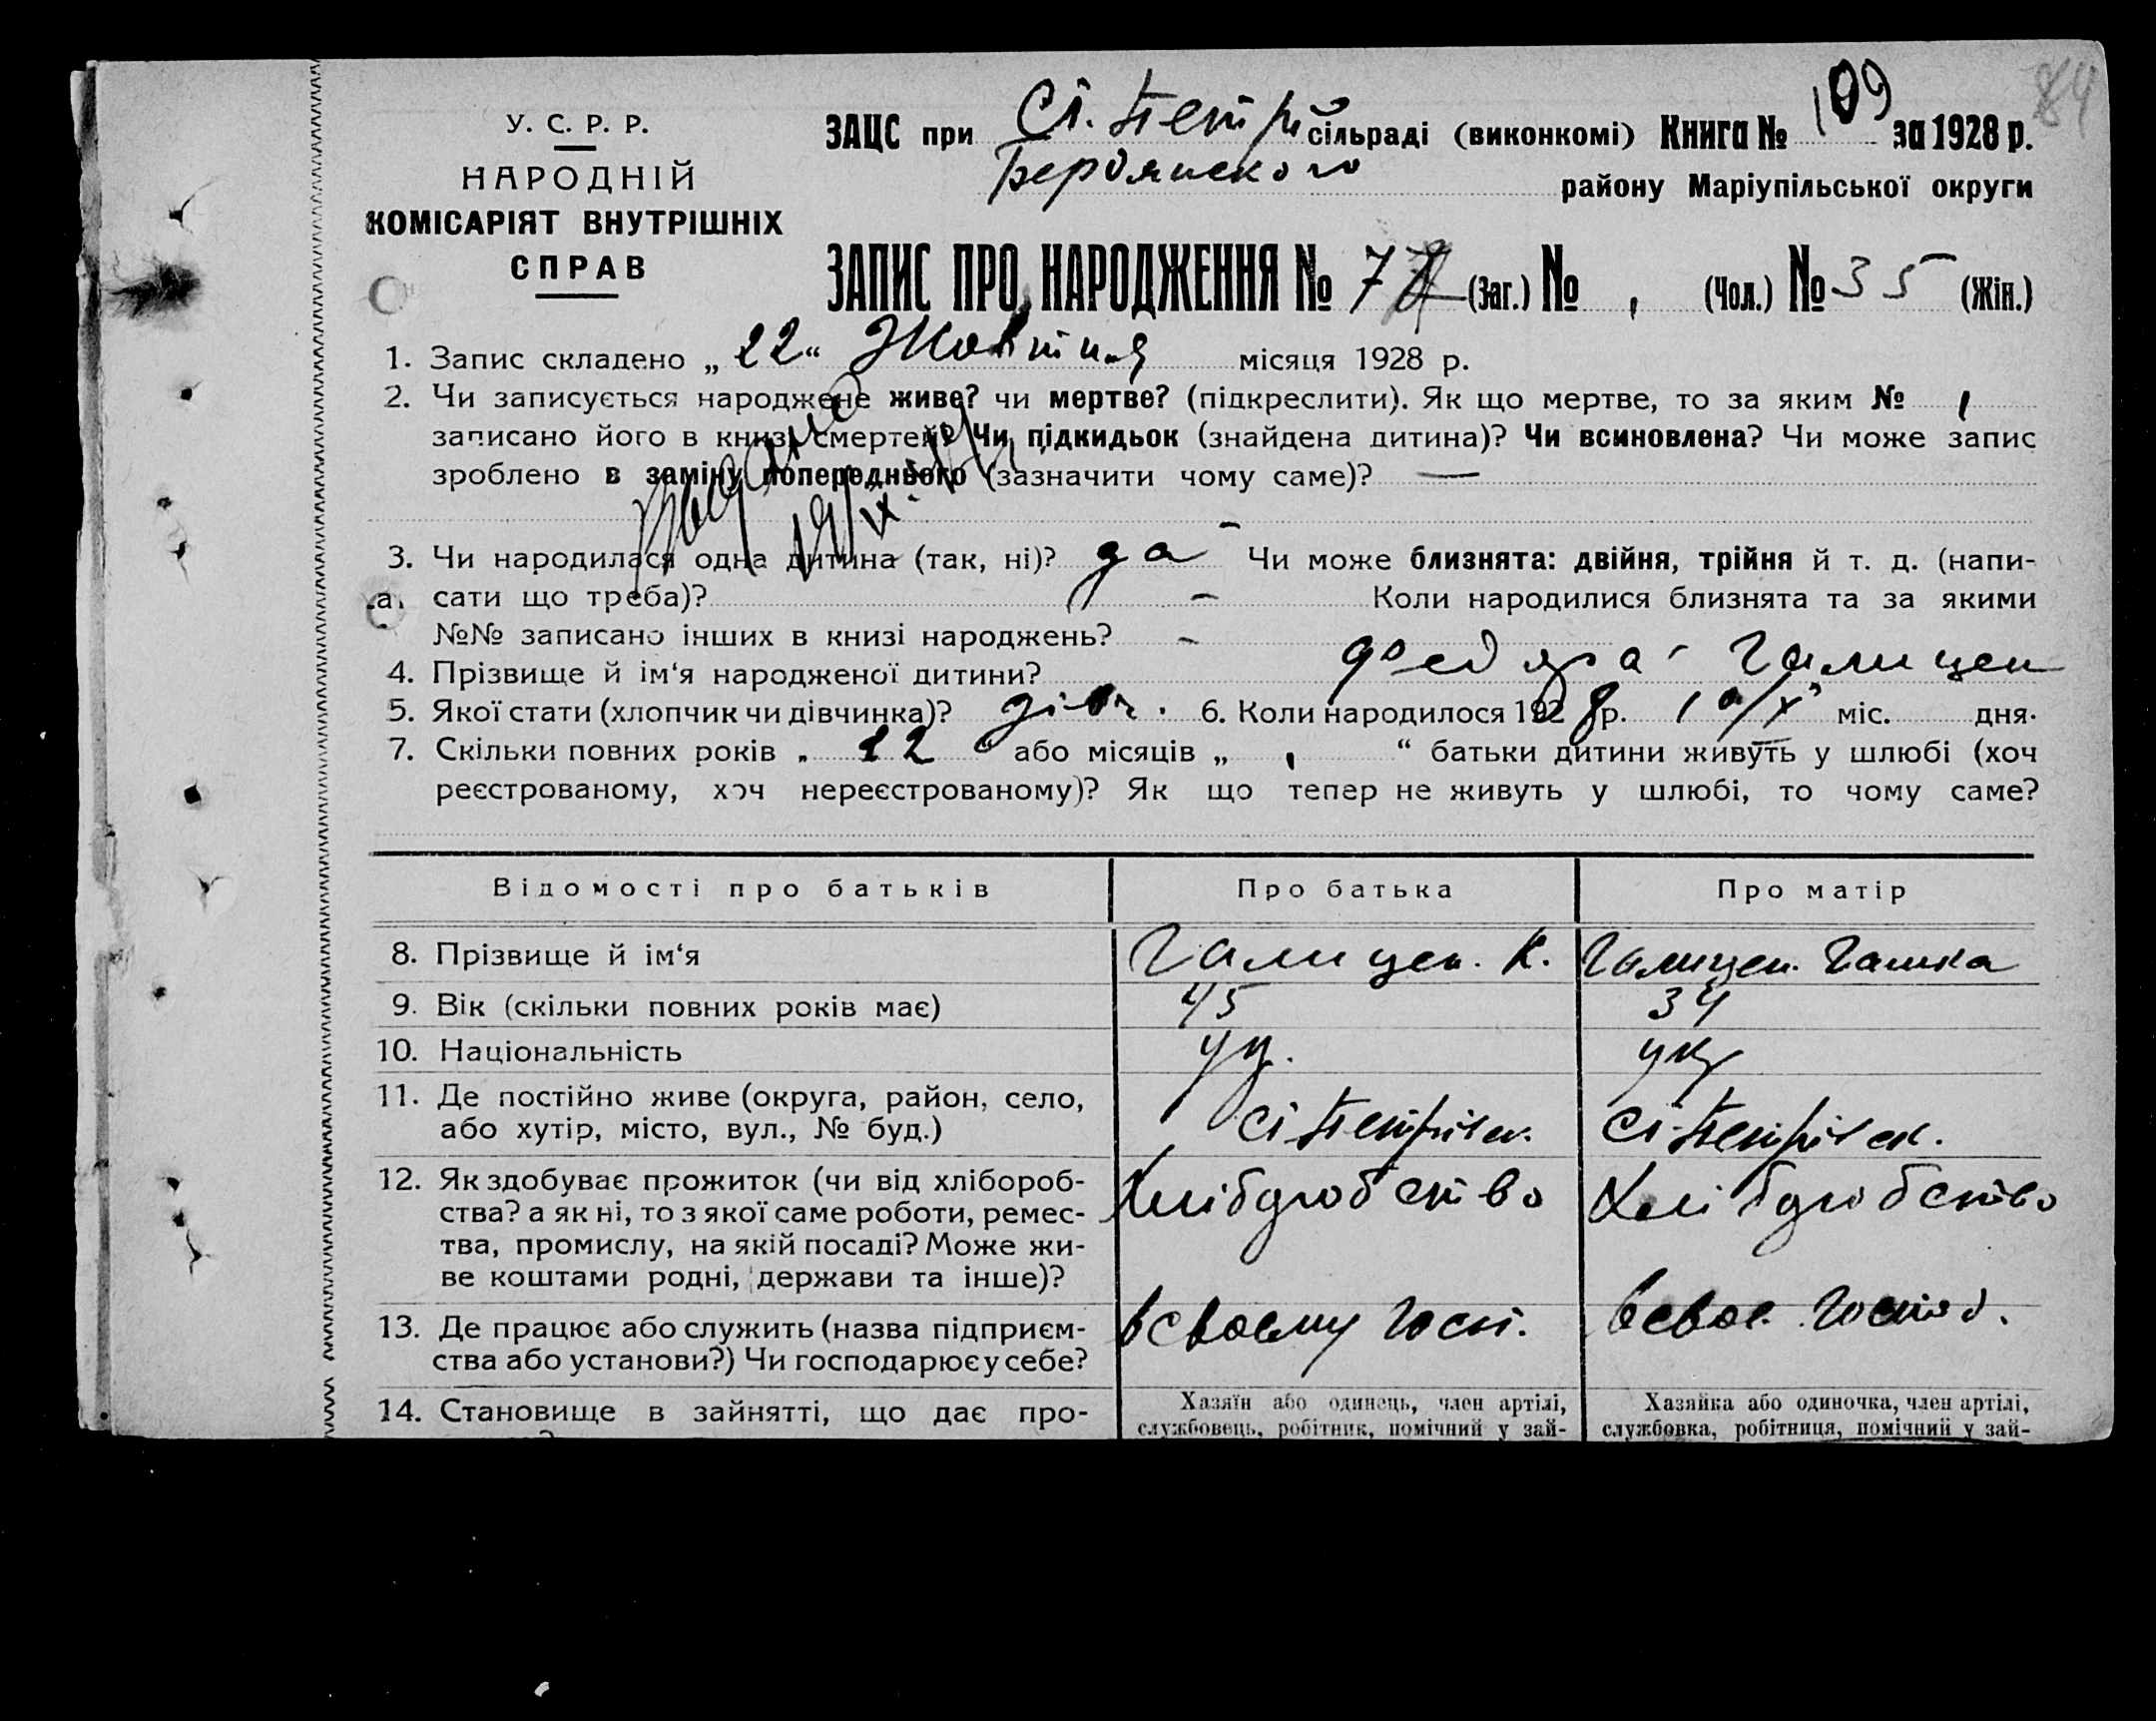 У. С. Р. Р.
НАРОДНІЙ
КОМІСАРІЯТ ВНУТРІШНІХ
СПРАВ
ЗАЦС при Ст. Петрі сільраді (виконкомі) Книга № 109 за 1928 р. 84
Бердянского району Маріупільської округи
ЗАПИС ПРО НАРОДЖЕННЯ № 7 (Заг.) № (Чол.) № 35 (Жін.)
1. Запис складено „ 22 “ Жовтня місяця 1928 р.
2. Чи записується народжене живе? чи мертве? (підкреслити). Як що мертве, то за яким №
записано його в книзі смертей? Чи підкидьок (знайдена дитина)? Чи всиновлена? Чи може запис
зроблено в заміну попереднього (зазначити чому саме)? —
3. Чи народилася одна дитина (так, ні)? да Чи може близнята: двійня, трійня й т. д. (напи-
сати що треба)? – Коли народилися близнята та за якими
№№ записано інших в книзі народжень? –
4. Прізвище й ім‘я народженої дитини? Федора Галицен
5. Якої стати (хлопчик чи дівчинка)? дівч. 6. Коли народилося 1928 р. міс. дня.
7. Скільки повних років „ 22 “ або місяців „ “ батьки дитини живуть у шлюбі (хоч
реєстрованому, хоч нереєстрованому)? Як що тепер не живуть у шлюбі, то чому саме?
Відомості про батьків Про батька Про матір
8. Прізвище й ім‘я Галицен. К. Галицен. Гашка
9. Вік (скільки повних років має) 45 34
10. Національність укр
11. Де постійно живе (округа, район, село,
або хутір, місто, вул., № буд.) Ст Петрівск. Ст. Петрівск.
12. Як здобуває прожиток (чи від хлібороб-
ства? а як ні, то з якої саме роботи, ремес-
тва, промислу, на якій посаді? Може жи-
ве коштами родні, держави та інше)? Хлібдробство Хлібдробство
13. Де працює або служить (назва підприєм-
ства або установи?) Чи господарює у себе? в своему Госп. в свое. Господ.
14. Становище в зайнятті, що дає про-
Хазяїн або одинець, член артілі,
службовець, робітник, помічний у зай-
Хазяйка або одиночка, член артілі,
службовка, робітниця, помічний у зай-